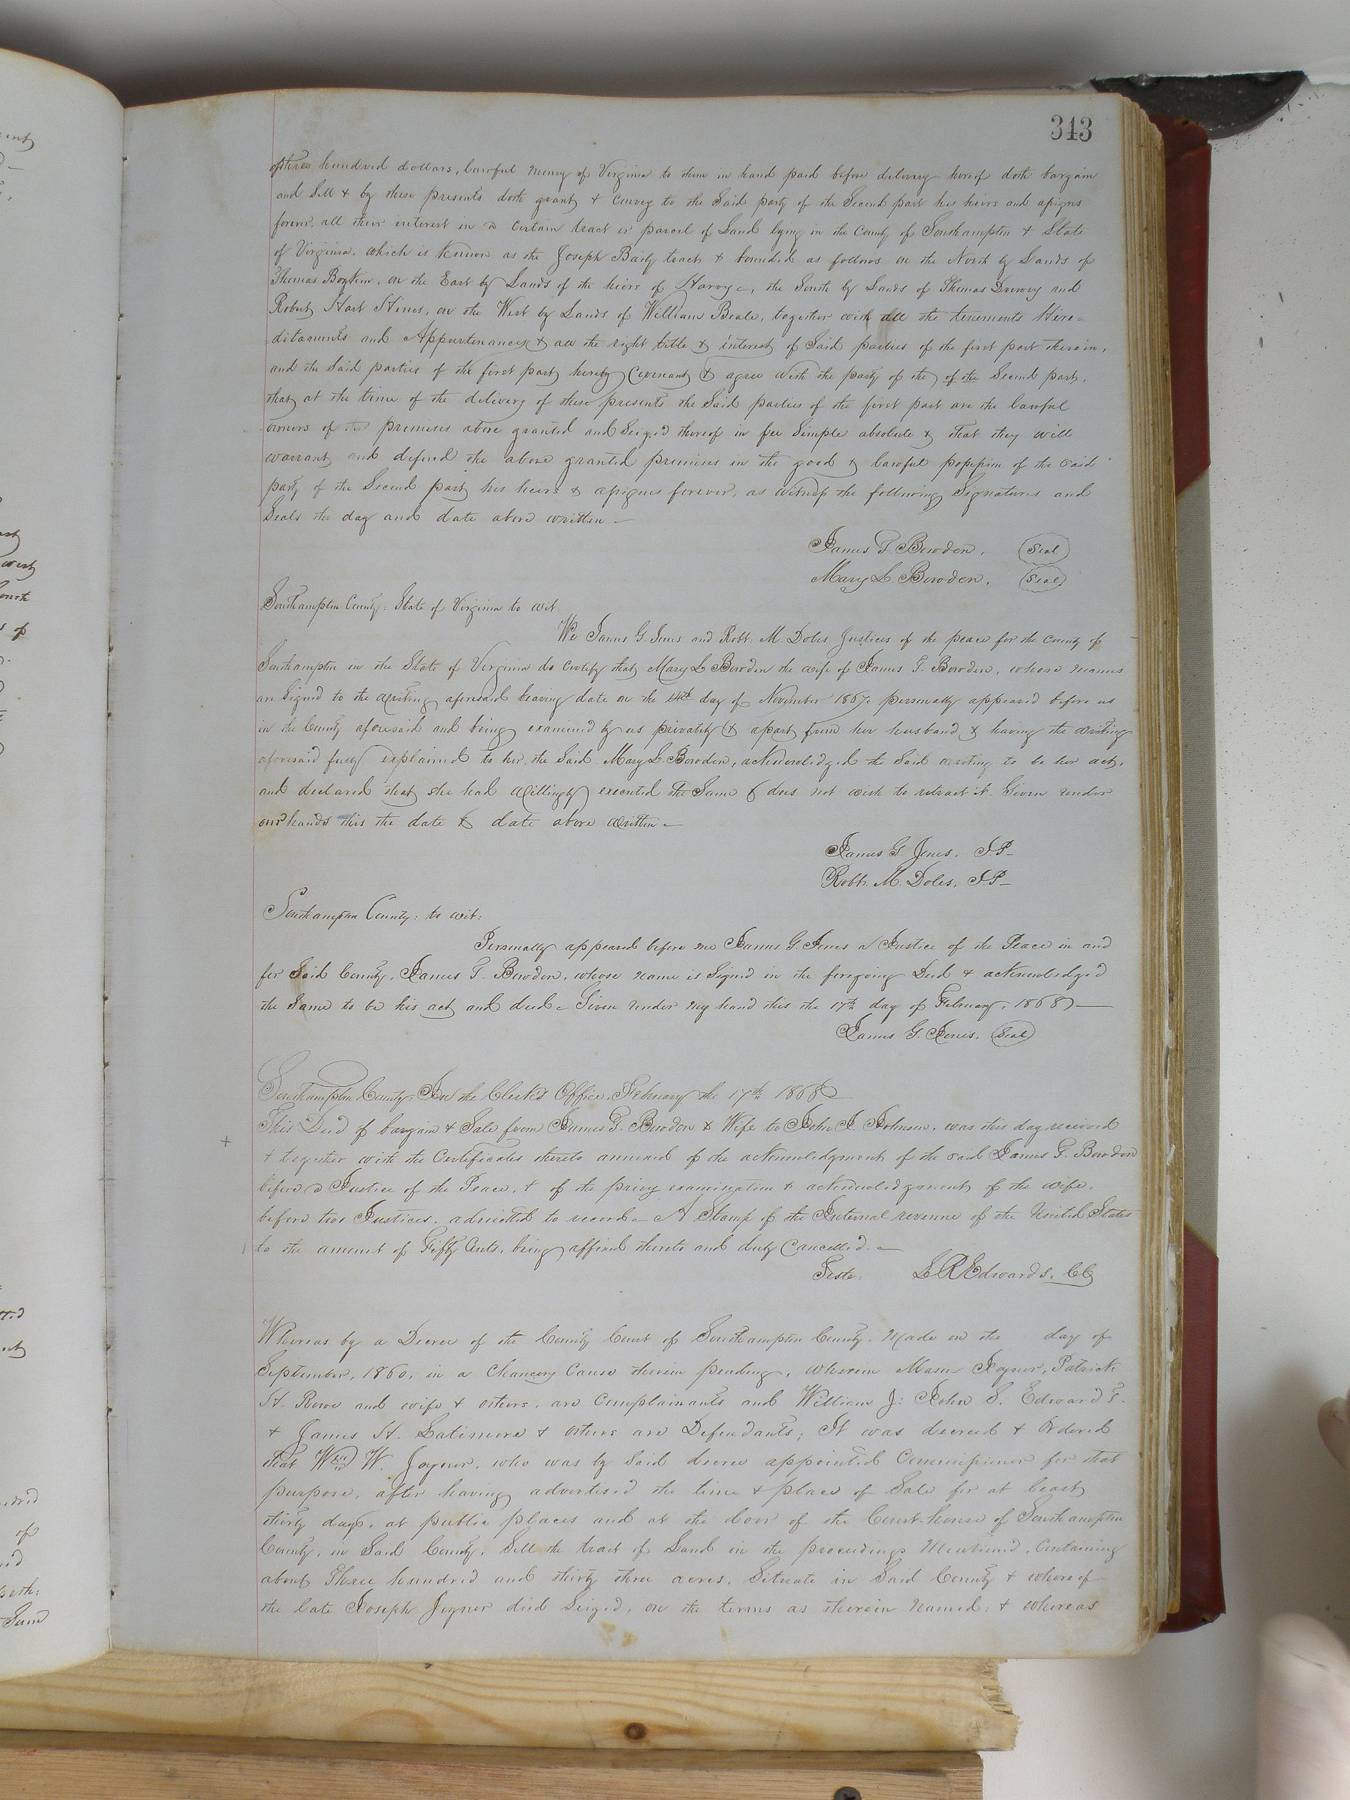 343
of three hundred dollars, lawful money of Virginia to them in hand paid before delivery hereof doth bargain
and sell & by these presents doth grant & convey to the Said party of the Second part his heirs and assigns
forever, all their interest in a certain tract or parcel of Land lying in the County of Southampton & State
of Virginia, which is known as the Joseph Baily track & bounded as follows on the North by Lands of
Thomas Boykin, on the East by Lands of the heirs of Harvy, the South by Lands of Thomas Drewry and
Robert Hart Hines, on the West by Lands of William Beale, together with all the tenements Here-
ditaments and Appurtenances & all the right title & interest of Said parties of the first part therein,
and the Said parties of the first part hereby Covenant & agree with the party of the of the Second part,
that at the time of the delivery of these presents the Said parties of the first part are the lawful
owners of the premises above granted and Seized thereof in fee Simple absolute & that they will
warrant and defend the above granted premises in the good & lawful possession of the said
party of the Second part his heirs & assigns forever, as witness the following Signatures and
Seals the day and date above written -
James T Bowden. (Seal)
Mary L Bowden. (Seal)
Southampton County: State of Virginia to wit.
We James G. Jones and Robt. M. Doles Justices of the peace for the County of
Southampton in the State of Virginia do Certify that Mary L Bowden the wife of James T. Bowden, whose names
are Signed to the writing aforesaid bearing date on the 14th day of November 1867. personally appeared before us
in the County aforesaid and being examined by us privately & apart from her husband & having the writing
aforesaid fully explained to her, the Said Mary L Bowden, acknowledged the Said writing to be her act,
and declared that she had willingly executed the Same & does not wish to retract it. Given under
our hands this the date & date above written -
James G Jones. J.P-
Robt. M. Doles. J.P-
Southampton County: to wit:
Personally appeared before me James G. Jones a Justice of the Peace in and
for Said County, James T. Bowden, whose name is Signed in the foregoing Deed & acknowledged
the Same to be his act and deed - Given under my hand this the 17th day of February, 1868 -
James G. Jones. (Seal)
Southampton County, In the Clerk's Office, February the 17th 1868
This Deed of bargain & Sale from James T. Bowden & Wife to John J. Johnson, was this day received
& together with the Certificates thereto annexed of the acknowledgment of the said James T. Bowden
before a Justice of the Peace, & of the privy examination & acknowledgment of the wife,
before two Justices, admitted to record - A Stamp of the Internal revenue of the United States
to the amount of Fifty Cents, being affixed thereto and duly Cancelled. -
Teste. L R Edwards. CC
Whereas by a Decree of the County Court of Southampton County. Made on the day of
September, 1860, in a Chancery Cause therein pending, wherein Mason Joyner, Patrick
H. Rowe and wife & others, are Complainants and William J: John S. Edward T.
& James H. Latimore & others are Defendants; It was decreed & Ordered
that Wm W. Joyner, who was by Said decree appointed Commissioner for that
purpose, after having advertised the time & place of Sale for at least
thirty days, at public places and at the door of the Court-house of Southampton
County, in Said County, Sell the tract of Land in the proceedings Mentioned, Containing
about Three hundred and thirty three acres, Situate in Said County & whereof
the late Joseph Joyner died Seized, on the terms as therein named; & whereas